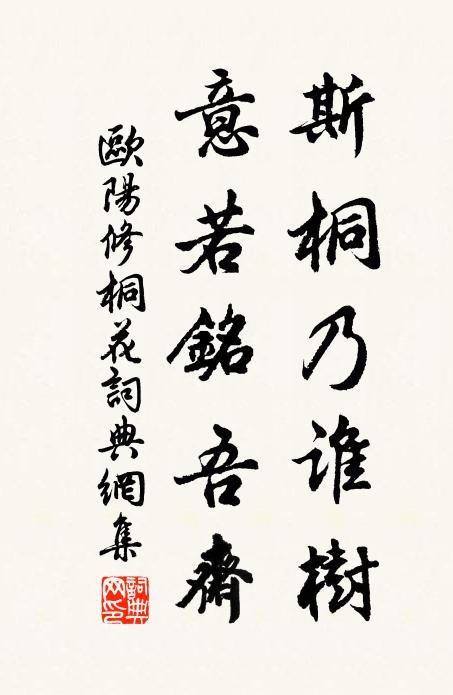 斯桐乃誰樹
意若銘吾齋
歐陽修桐花詞典網集
詞典網印